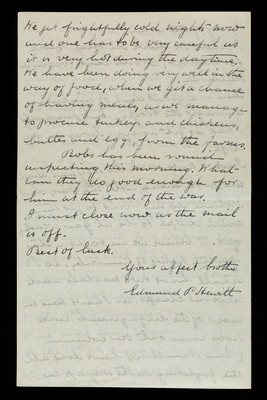 We get frightfully cold nights now
and one has to be very careful as
it is very hot during the daytime.
We have been doing very well in the
way of food, when we get a chance
of having meals, as we manage
to procure turkey and chickens,
butter and eggs, from the farms.
Bobs has been round
inspecting this morning. What
can they do good enough for
him at the end of the war.
I must close now as the mail
is off.
Best of luck.
Your affect brother
Edmund P Hewitt